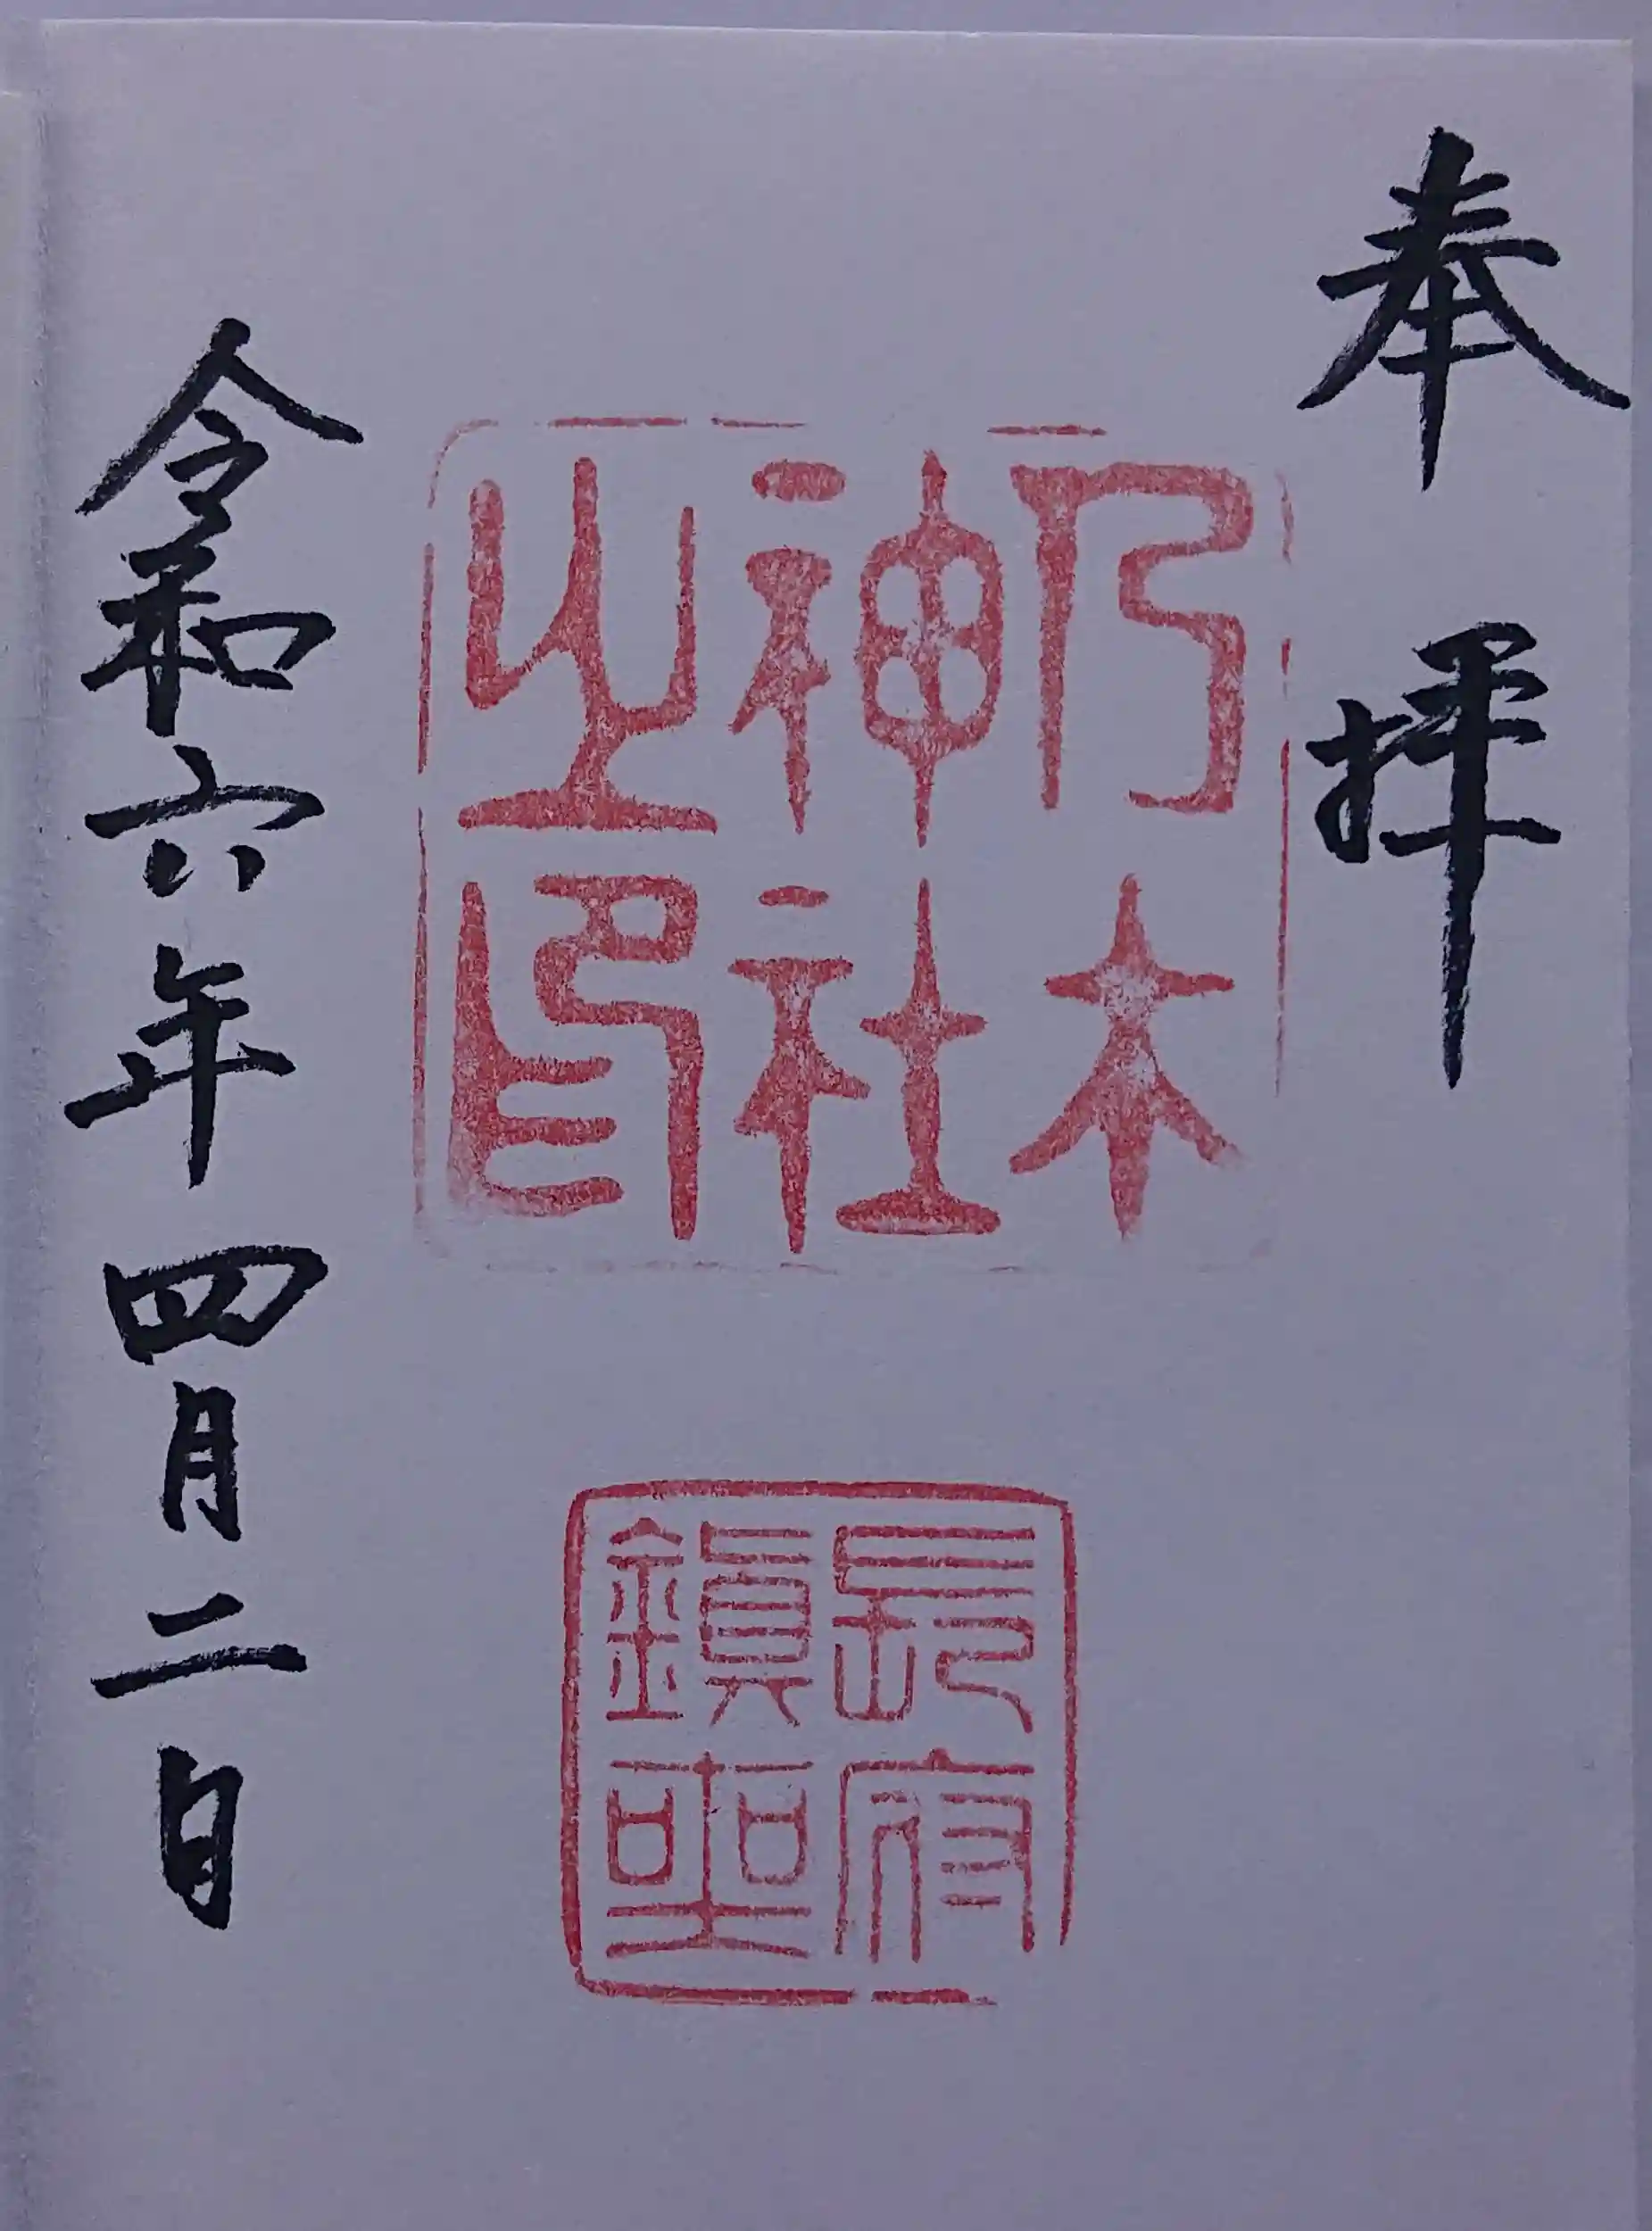 奉拝
乃木
神社
之印
長府
鎮坐
令和六年四月二日